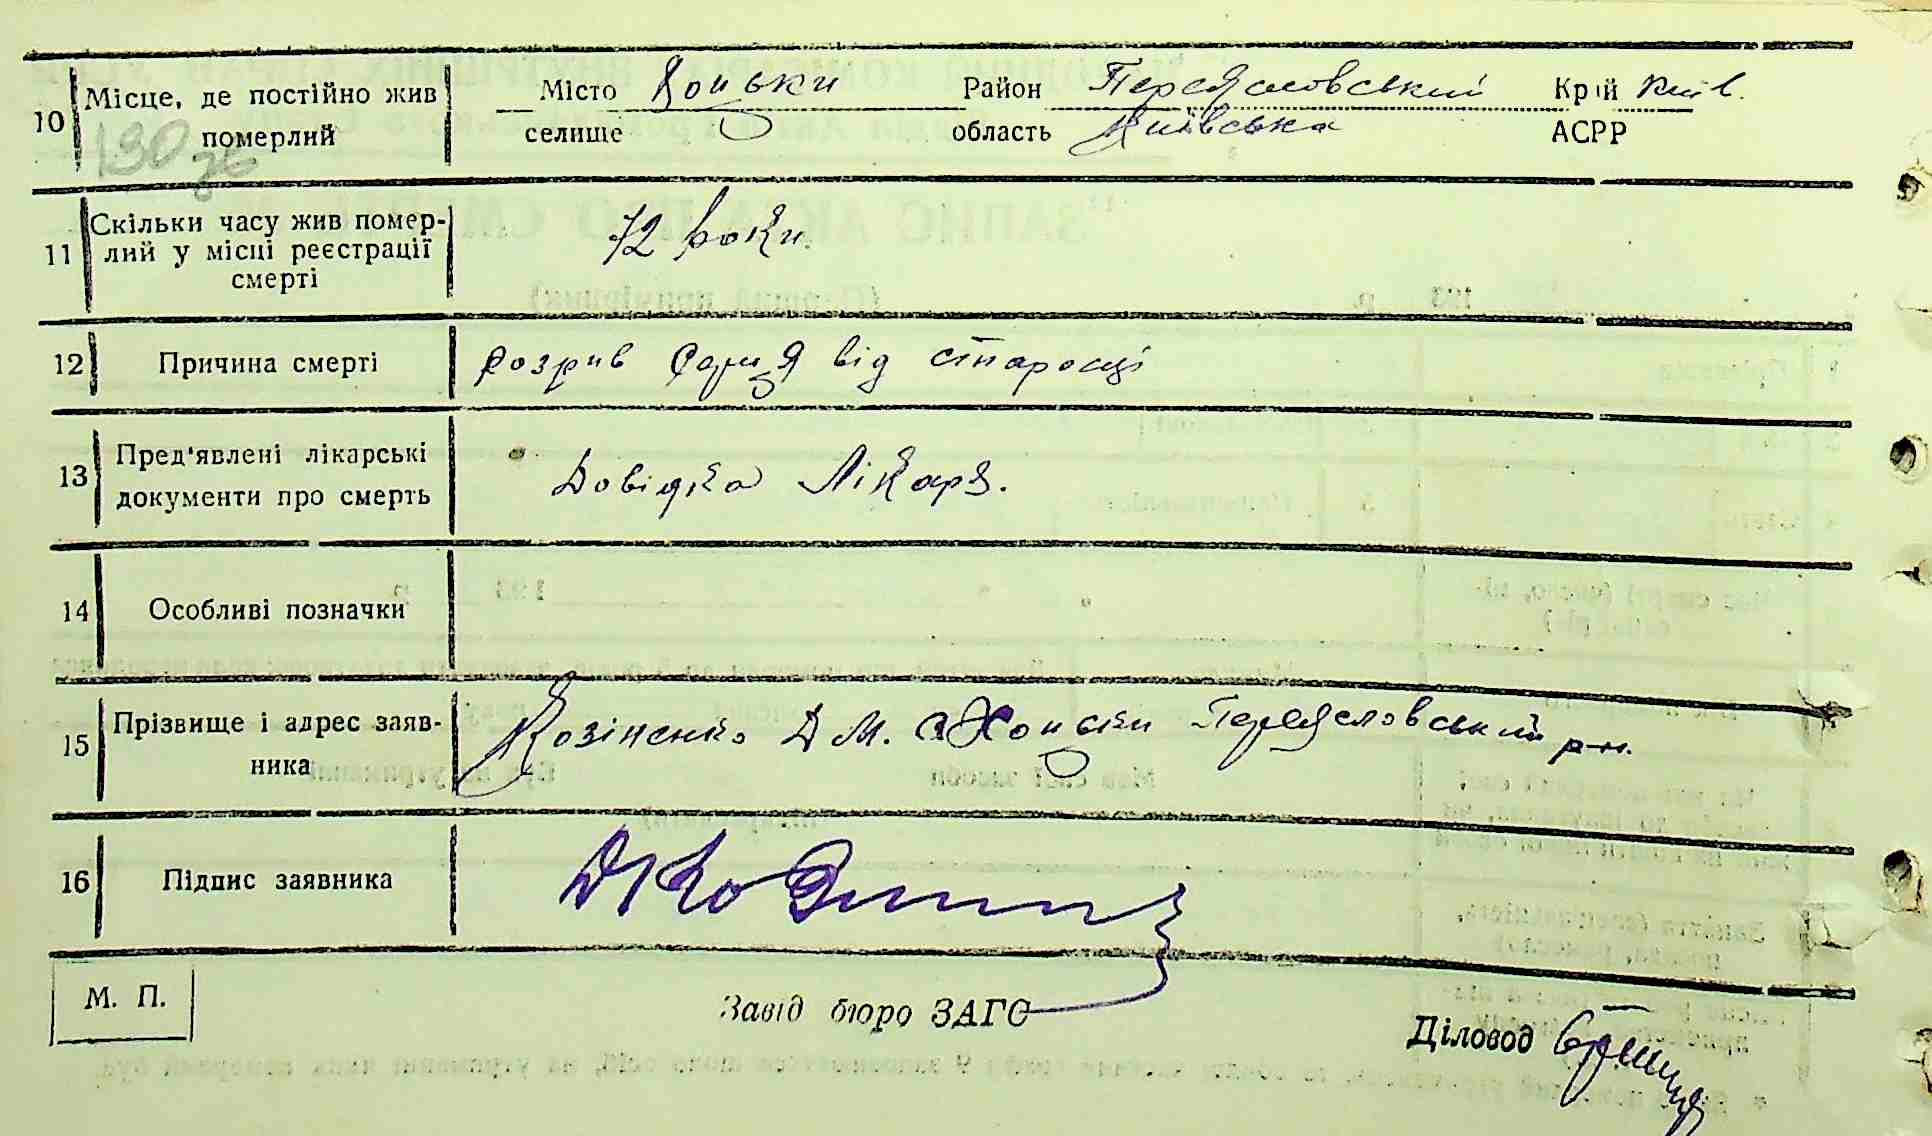 10 Місце, де постійно жив померлий
Місто Хоцьки Район Переяславський Край Київ.
селище область Київська АСРР
130 зв
11 Скільки часу жив помер-
лий у місці реєстрації
смерті
72 роки.
12 Причина смерті розрив серця від старості
13 Пред'явлені лікарські
документи про смерть
Довідка Лікаря.
14 Особливі позначки
15 Прізвище і адрес заяв-
ника
Козіненко Д М. с Хоцьки Переяславський р-н.
16 Підпис заявника
М. П.
Завід бюро ЗАГС
Діловод